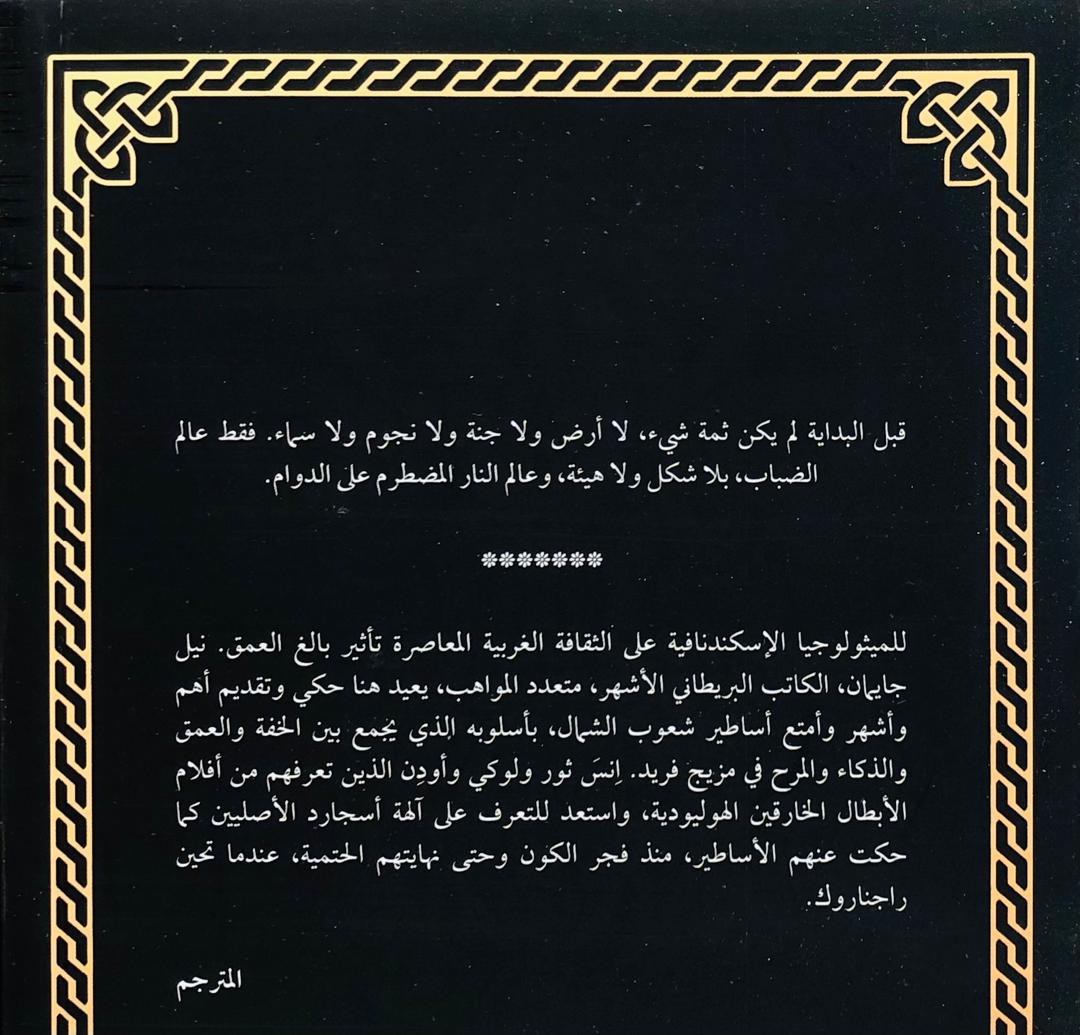 قبل البداية لم يكن ثمة شيء، لا أرض ولا جنة ولا نجوم ولا سماء. فقط عالم
الضباب، بلا شكل ولا هيئة، وعالم النار المضطرم على الدوام.
*******
للميثولوجيا الإسكندنافية على الثقافة الغربية المعاصرة تأثير بالغ العمق. نيل
جايمان، الكاتب البريطاني الأشهر، متعدد المواهب، يعيد هنا حكي وتقديم أهم
وأشهر وأمتع أساطير شعوب الشمال، بأسلوبه الذي يجمع بين الخفة والعمق
والذكاء والمرح في مزيج فريد. اِنسَ ثور ولوكي وأودِن الذين تعرفهم من أفلام
الأبطال الخارقين الهوليودية، واستعد للتعرف على آلهة أسجارد الأصليين كما
حكت عنهم الأساطير، منذ فجر الكون وحتى نهايتهم الحتمية، عندما تحين
راجناروك.
المترجم